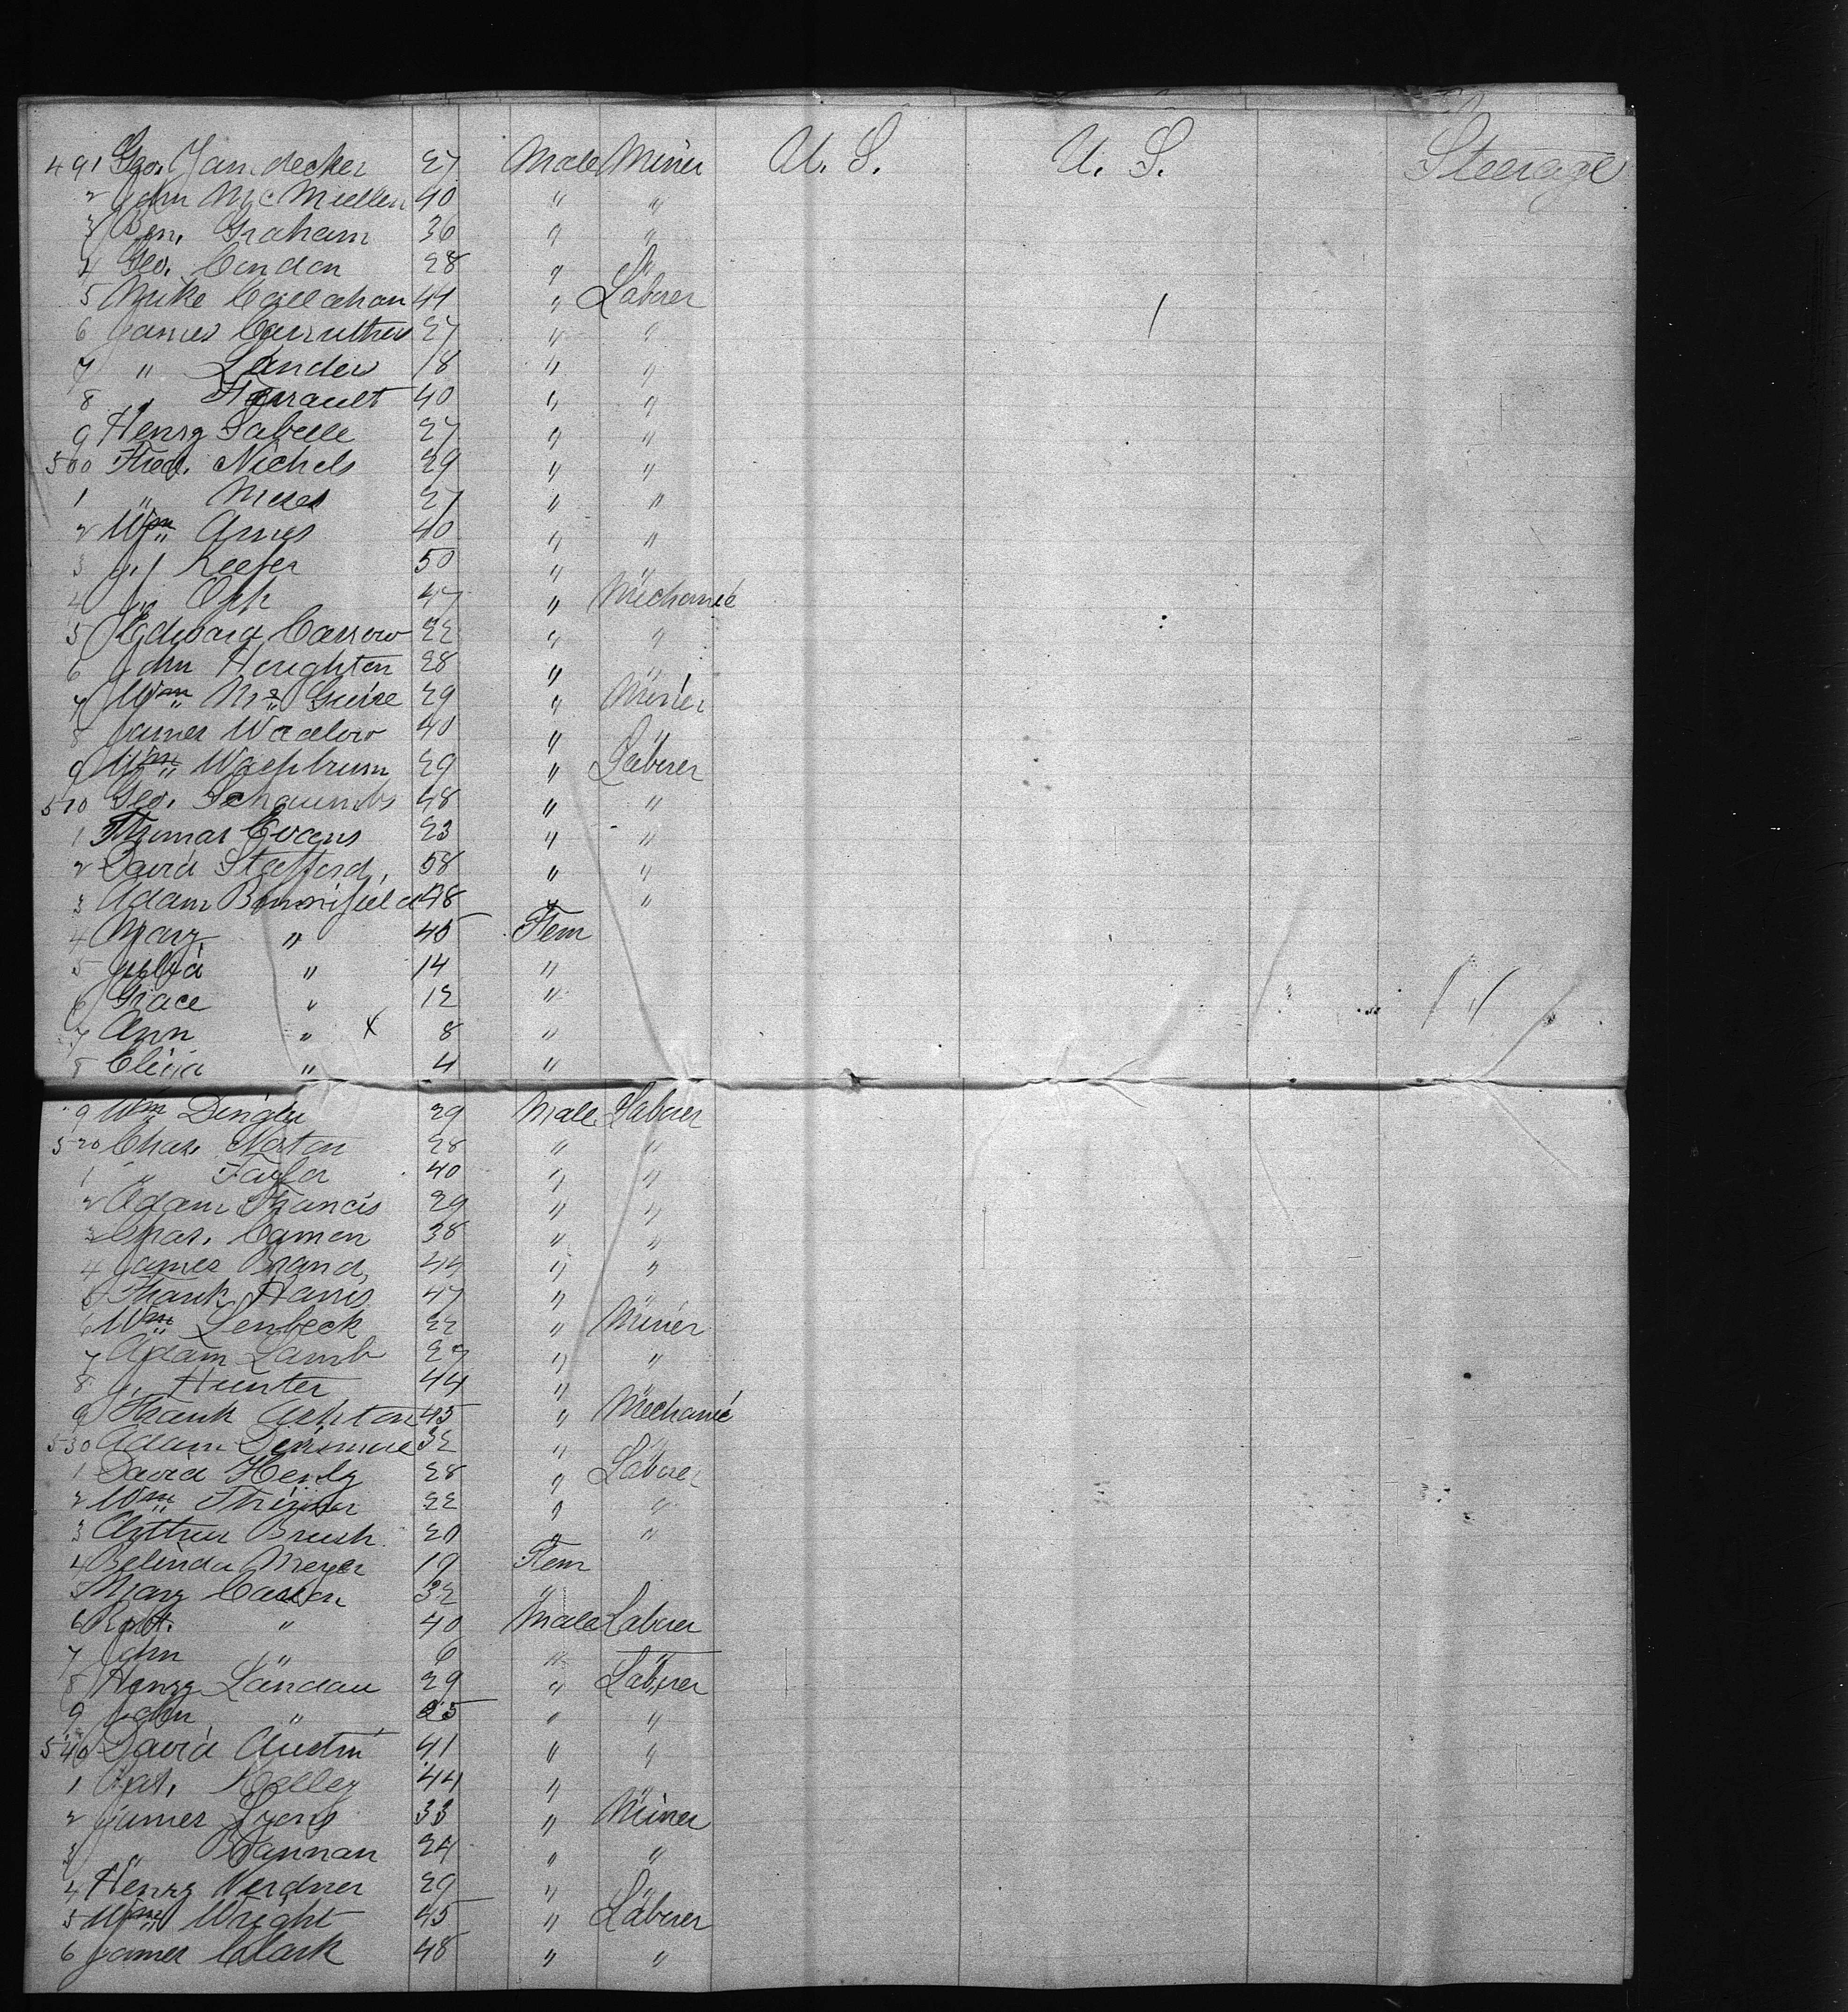 491 Geo. Vandecker 27 Male Miner U. S. U. S. Steerage
2 John McMullen 40 " "
3 Ben. Graham 36 " "
4 Geo. Condon 28 " "
5 Mike Callahan 41 " Laborer
6 James Carruthers 27 " "
7 " Landers 18 " "
8 " 40 " "
9 Henry Labelle 27 " "
500 Fred. Nichols 29 " "
1 " 27 " "
2 Wm Ames 40 " "
3 " Keefer 50 " "
4 " Opp 47 " Mechanic
5 Edward Carrow 22 " "
6 John Houghton 28 " "
7 Wm McGuire 29 " Miner
8 James 40 " "
9 Wm 29 " Laborer
510 Geo. 48 " "
1 Thomas Evans 23 " "
2 David Stafford, 58 " "
3 Adam Bonnifield 48 " "
4 Mary " 45 Fem
5 " 14 "
6 Grace " 12 "
7 Ann " x 8 "
8 " 4 "
9 Wm 29 Male Laborer
520 Chas. Norton 28 " "
1 " Taylor 40 " "
2 Adam Francis 29 " "
3 Chas. 38 " "
4 James Brand, 44 " "
5 Frank Harris 47 " "
6 Wm Lenbeck 22 " Miner
7 Adam Lamb 27 " "
8 " Hunter 44 " "
9 Frank Ashton 45 " Mechanic
530 Adam 32 " "
1 David 28 " Laborer
2 Wm 22 " "
3 Arthur Brush 20 " "
4 Belinda Meyer 19 Fem
5 Mary 32 "
6 Robt. " 40 Male Laborer
7 John " 6 "
8 Henry Landau 29 " Laborer
9 John " 25 " "
540 David Austin 41 " "
1 Pat. Kelley 44 " "
2 James Lyons 33 " Miner
3 " Bannan 24 " "
4 Henry Nerdner 29 " "
5 Wm Wright 45 " Laborer
6 James Clark 48 " "